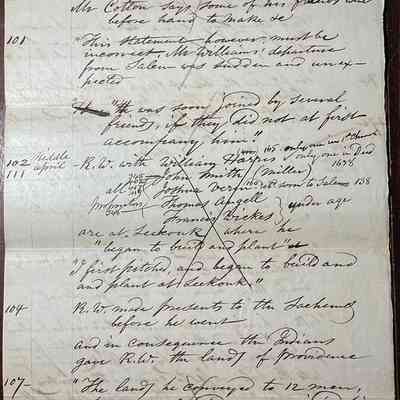 Mr Cotton says some of his friends
before hand to make &c
101 "This statement however, must be
incorrect. Mr Williams' departure
from Salem was sudden and unex-
pected
"It was soon joined by several
friends, if they did not at first
accompany him."
102 Middle April - R.W. with William Harris only one in 1st Church
111 John Smith (Miller) only one in Deed 1638
all Joshua Verin to Salem 138
proprietors Thomas Angell
Francis Wickes under age
are at Seekonk where he
"began to build and plant"
"I first pitched, and began to build and
and plant at Seekonk."
104 R.W. made presents to the Sachems
before he went
and in consequence the Indians
gave R.W. the lands of Providence
107- "The lands he conveyed to 12 men,